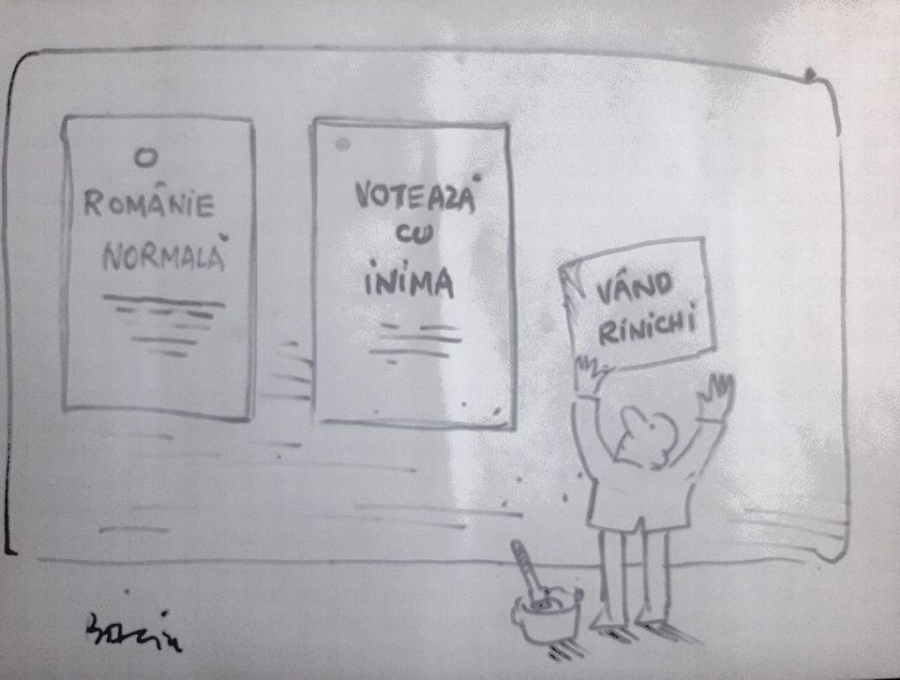 O
ROMÂNIE
NORMALĂ
VOTEAZĂ
CU
INIMA
VÂND
RINICHI